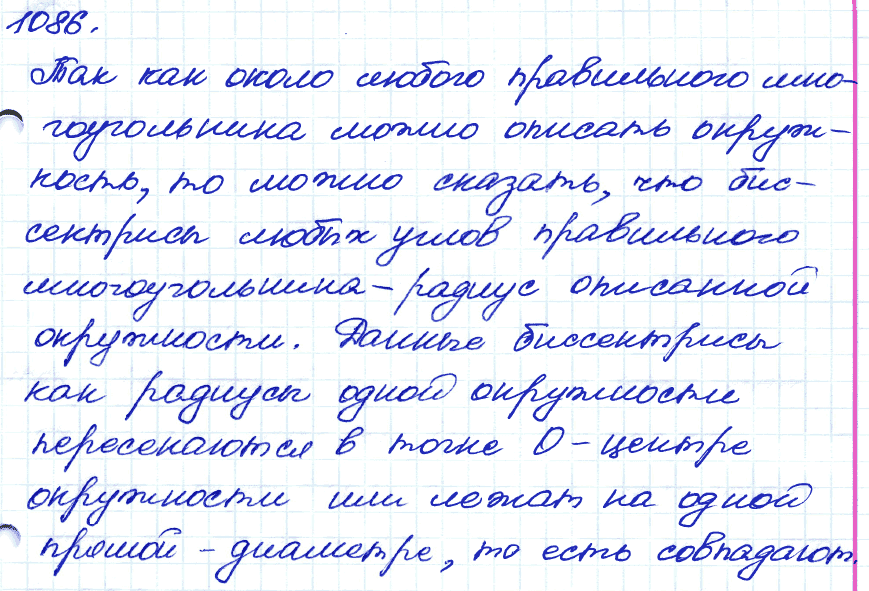 1086.
Так как около любого правильного мно-
гоугольника можно описать окруж-
ность, то можно сказать, что бис-
сектрисы любых углов правильного
многоугольника – радиус описанной
окружности. Данные биссектрисы
как радиусы одной окружности
пересекаются в точке О – центре
окружности или лежат на одной
прямой – диаметре, то есть совпадают.